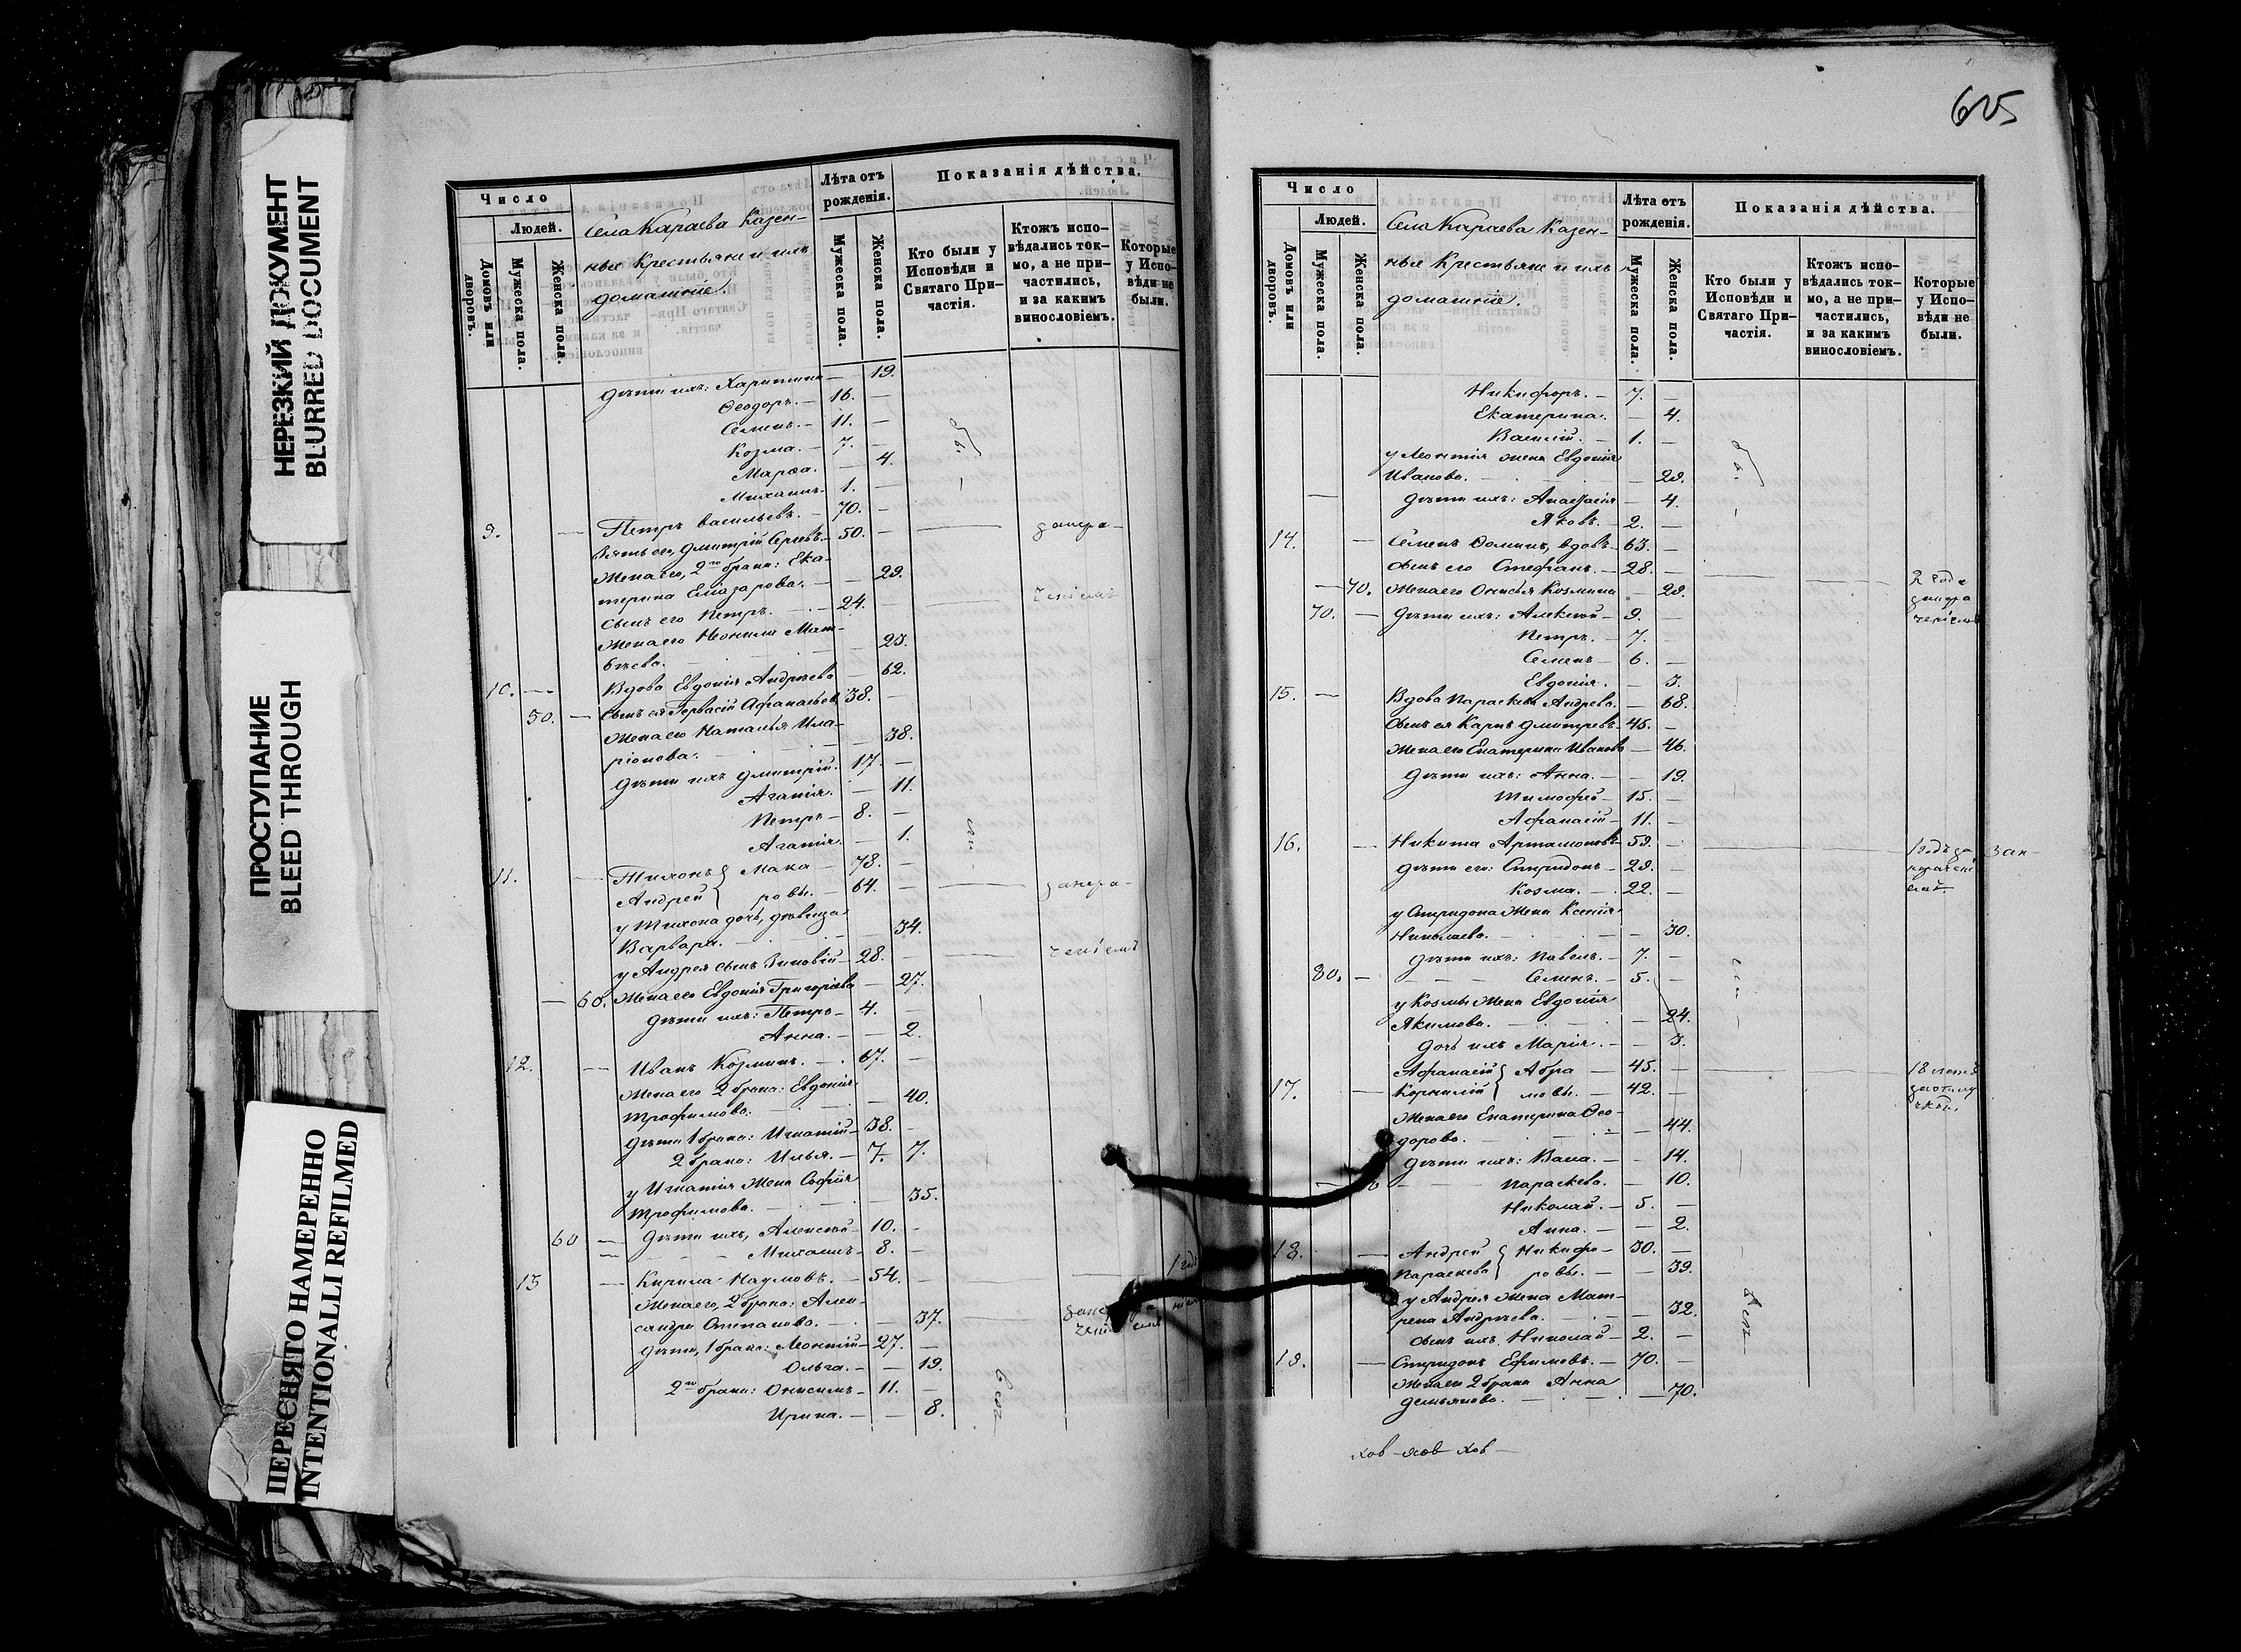 НЕРЕЗКИЙ ДОКУМЕНТ
BLURRED DOCUMENT
ПРОСТУПАНИЕ
BLEED THROUGH
ПЕРЕСНЯТО НАМЕРЕННО
INTENTIONALLI REFILMED
Число
Людей.
Домовъ или дворовъ.
Мужеска пола.
Женска пола.
Села Караева Казен-
ные Крестьяне и ихъ
домашніе.
Лѣта отъ рожденія.
Мужеска пола.
Женска пола.
Показанія дѣйства.
Кто были у Исповѣди и Святаго При-частія.
Ктожъ испо-вѣдались ток-мо, а не при-частились, и за какимъ винословіемъ.
Которые у Испо-вѣди не были.
Дѣти ихъ: Харитина — 19.
Ѳеодоръ. — 16. —
Семенъ. — 11. —
Козма. — 7. —
Марѳа. — 4.
Михаилъ. 1. —
9. — Петръ Васильевъ. — 70. —
Зять его, Дмитрій Сергѣевъ. — 50. —
Жена его, 2го брака: Ека-
терина Елиазарова. — — 29.
Сынъ его Петръ. — 24.
Жена его Неонила Мат-
вѣева. — 23.
10. — Вдова Евдокія Андрѣева 62.
50. — Сынъ ея Гервасій Афанасьев. 38. —
Жена его Наталья Ила-
ріонова. — 38.
Дѣти ихъ Дмитрій. 17. —
Агапія. — 11.
Петръ — 8. —
Агапія. — 1.
11. — Тихонъ } Мака — 78. —
Андрей } ровы. — 64. —
у Тихона дочь, дѣвица
Варвара. — 34.
у Андрея сынъ Зиновій — 28. —
— 60. Жена его Евдокія Григорьева — 27.
Дѣти ихъ: Петръ — 4. —
Анна. — — 2.
12. — Иванъ Козминъ. — 67. —
Жена его 2 брака: Евдокія
Трофимова. — 40.
Дѣти 1 брака: Игнатій — 38. —
2 брака: Илья. — 7. 7.
у Игнатія жена Софія
Трофимова. — 35.
60 — Дѣти ихъ, Алексѣй — 10. —
Михаилъ — 8. —
13 — Кирила Наумовъ. — 54. —
Жена его, 2 брака: Алек-
сандра Степанова. — 37.
Дѣти, 1 брака: Леонтій — 27. —
Ольга. — — 19.
2го брака: Онисимъ — 11. —
Ирина. — — 8.
605
Число
Людей.
Домовъ или дворовъ.
Мужеска пола.
Женска пола.
Села Караева Казен-
ные Крестьяне и ихъ
домашніе.
Лѣта отъ рожденія.
Мужеска пола.
Женска пола.
Показанія дѣйства.
Кто были у Исповѣди и Святаго При-частія.
Ктожъ испо-вѣдались ток-мо, а не при-частились, и за какимъ винословіемъ.
Которые у Испо-вѣди не были.
Никифоръ. — 7. —
Екатерина. — 4.
Василій. — 1. —
у Леонтія жена Евдокія
Иванова. — 29.
— Дѣти ихъ: Анастасія — 4.
Яковъ. — 2. —
14. — Семенъ Фоминъ, вдовъ — 63. —
Сынъ его Стефанъ. — 28. —
— 70. Жена его Онисья Козмина — 29.
70. — Дѣти ихъ: Алексѣй — 9. —
Петръ. — 7. —
Семенъ — 6. —
Евдокія. — 3.
15. — Вдова Параскева Андрѣева. — 68.
Сынъ ея Карпъ Дмитревъ — 45. —
Жена его Екатерина Иванова — 46.
Дѣти ихъ: Анна. — — 19.
Тимофей — 15. —
Афанасій — 11. —
16. — Никита Артамоновъ — 59. —
Дѣти его: Спиридонъ — 29. —
Козма. — 22. —
у Спиридона жена Ксенія
Николаева. — 30.
Дѣти ихъ: Павелъ. — 7. —
80. — Семенъ. — 5. —
у Козмы жена Евдокія
Якимова. — 24.
Дочь ихъ Марія. — 3.
17. — Афанасій } Абра — 45. —
Корнилій } мовы. — 42. —
Жена его Екатерина Ѳео-
дорова. — 44.
Дѣти ихъ: Васа. — — 14.
Параскева. — 10.
Николай. — 5. —
Анна. — — 2.
18. — Андрей } Никифо — 30. —
Параскева } ровы. — — 39.
у Андрея жена Мат-
рена Андрѣева. — 32.
Сынъ ихъ Николай — 2. —
19. — Спиридонъ Ефимовъ. — 70. —
Жена его 2 брака Анна
Демьянова. — 70.